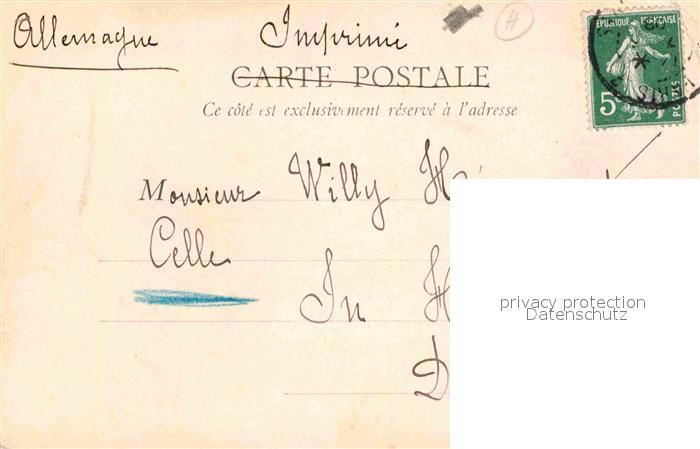 Allemagne
Imprimé
CARTE POSTALE
Ce côté est exclusivement réservé à l'adresse
RÉPUBLIQUE FRANÇAISE
5
POSTES
Monsieur Willy
Celle
In
privacy protection
Datenschutz